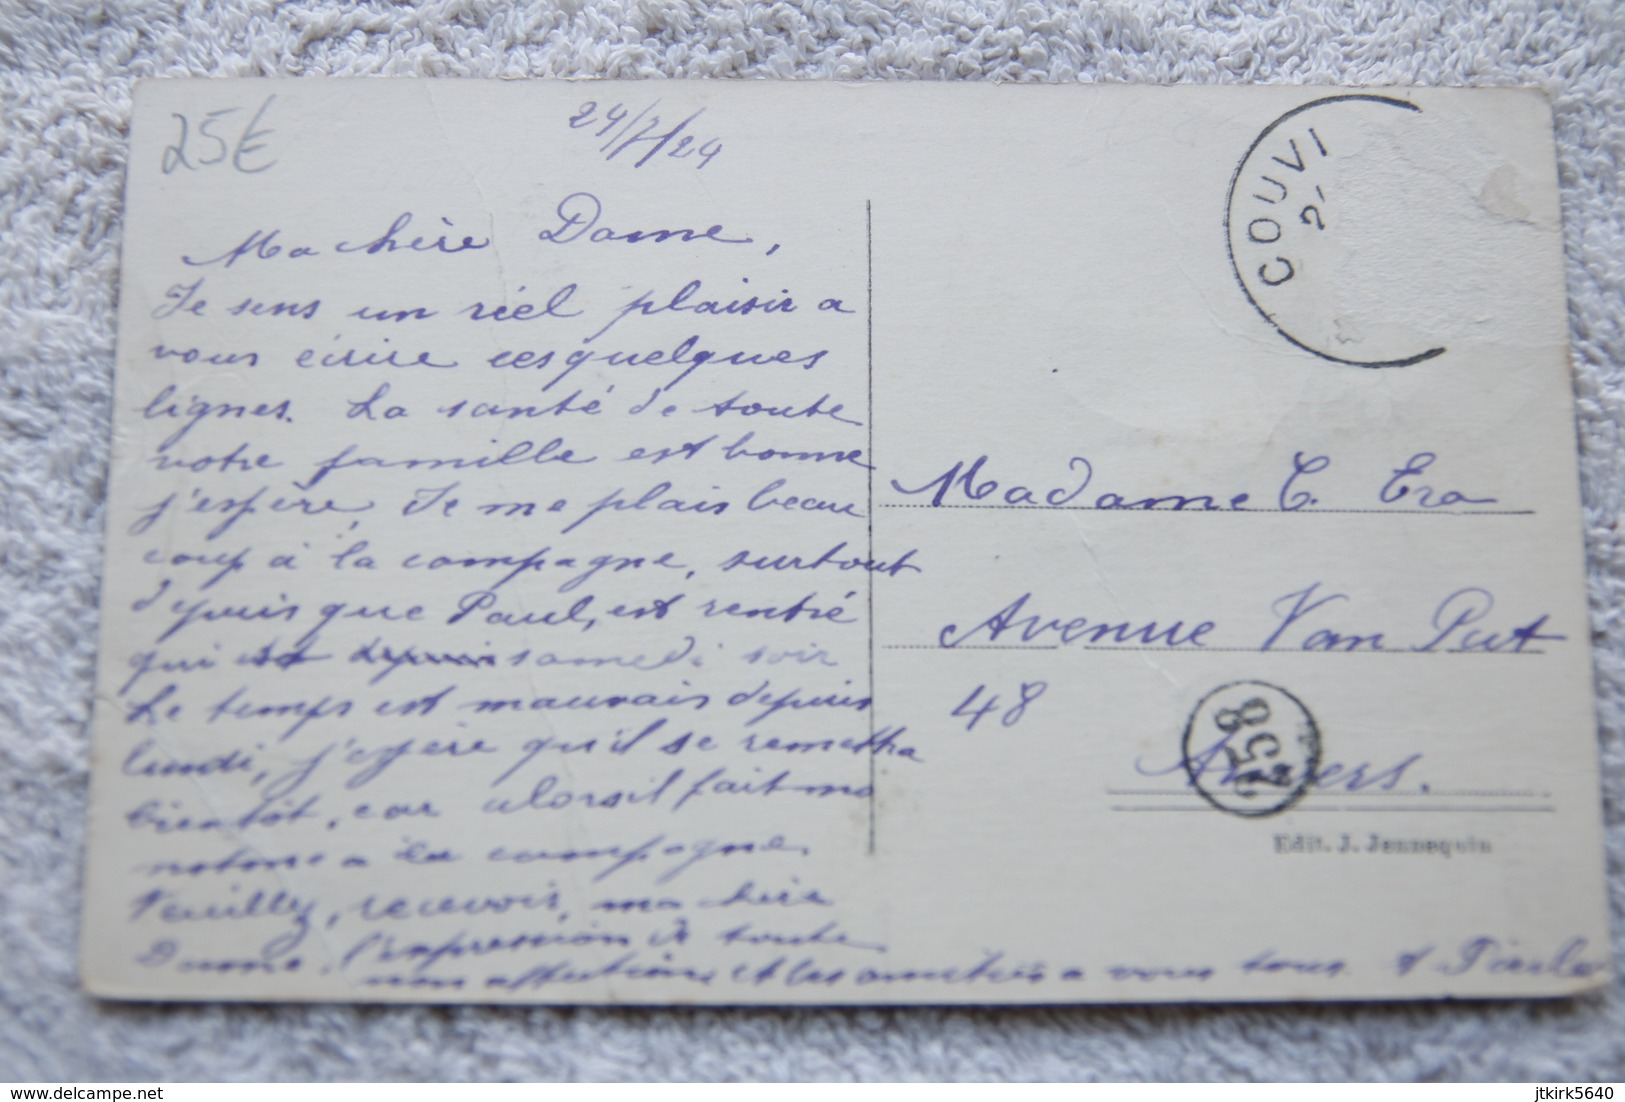 25€
24/7/24
Ma chère Dame,
Je sens un réel plaisir a
vous écrire ces quelques
lignes. La santé de toute
votre famille est bonne
j'espère, Je me plais beau
coup à la campagne, surtout
depuis que Paul, est rentré
qui samedi soir
Le temps est mauvais depuis
lundi, j'espère qu'il se remettra
bientôt, car alors il fait
a la campagne.
Veuillez, recevoir, ma chère
Dame, l'expression de toute
mon affection, et les amitiés a vous tous.
COUVI
2-
Madame C. Era
Avenue Van Put
48
Anvers.
258
Edit. J. Jennequin
delcampe.net
jtkirk5640